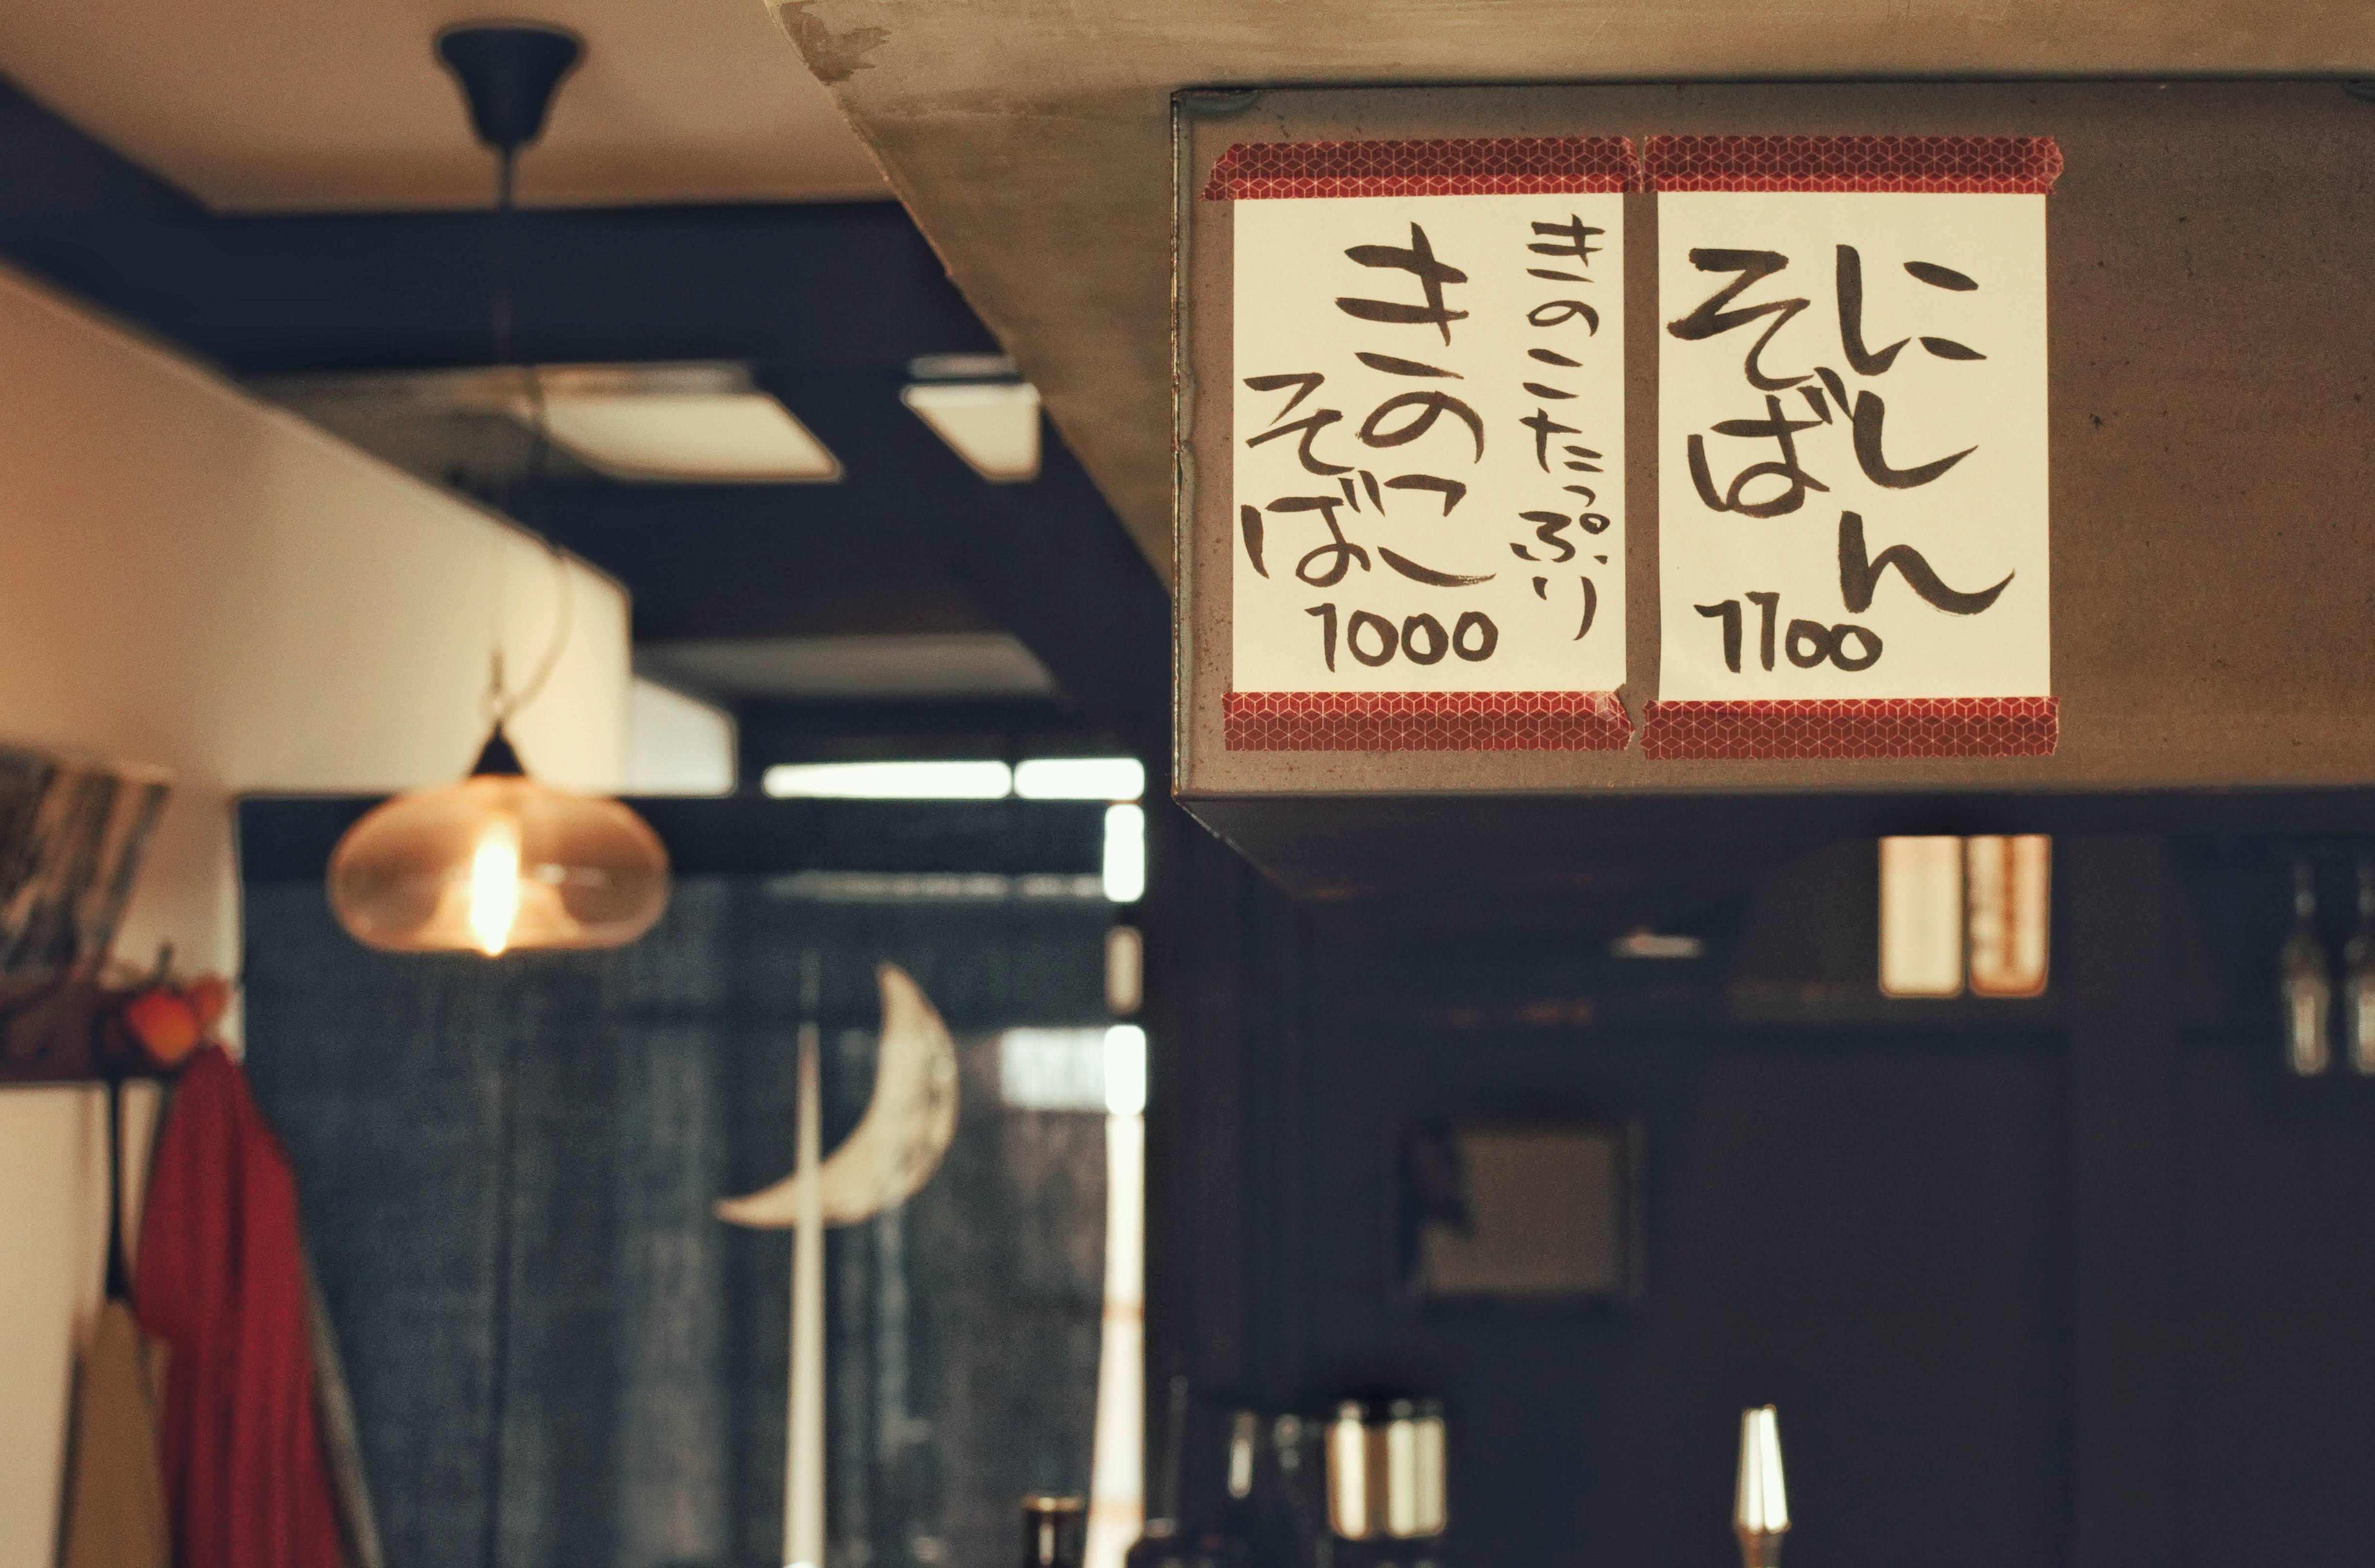 にしん
そば
1100
きのこたっぷり
きのこ
そば
1000